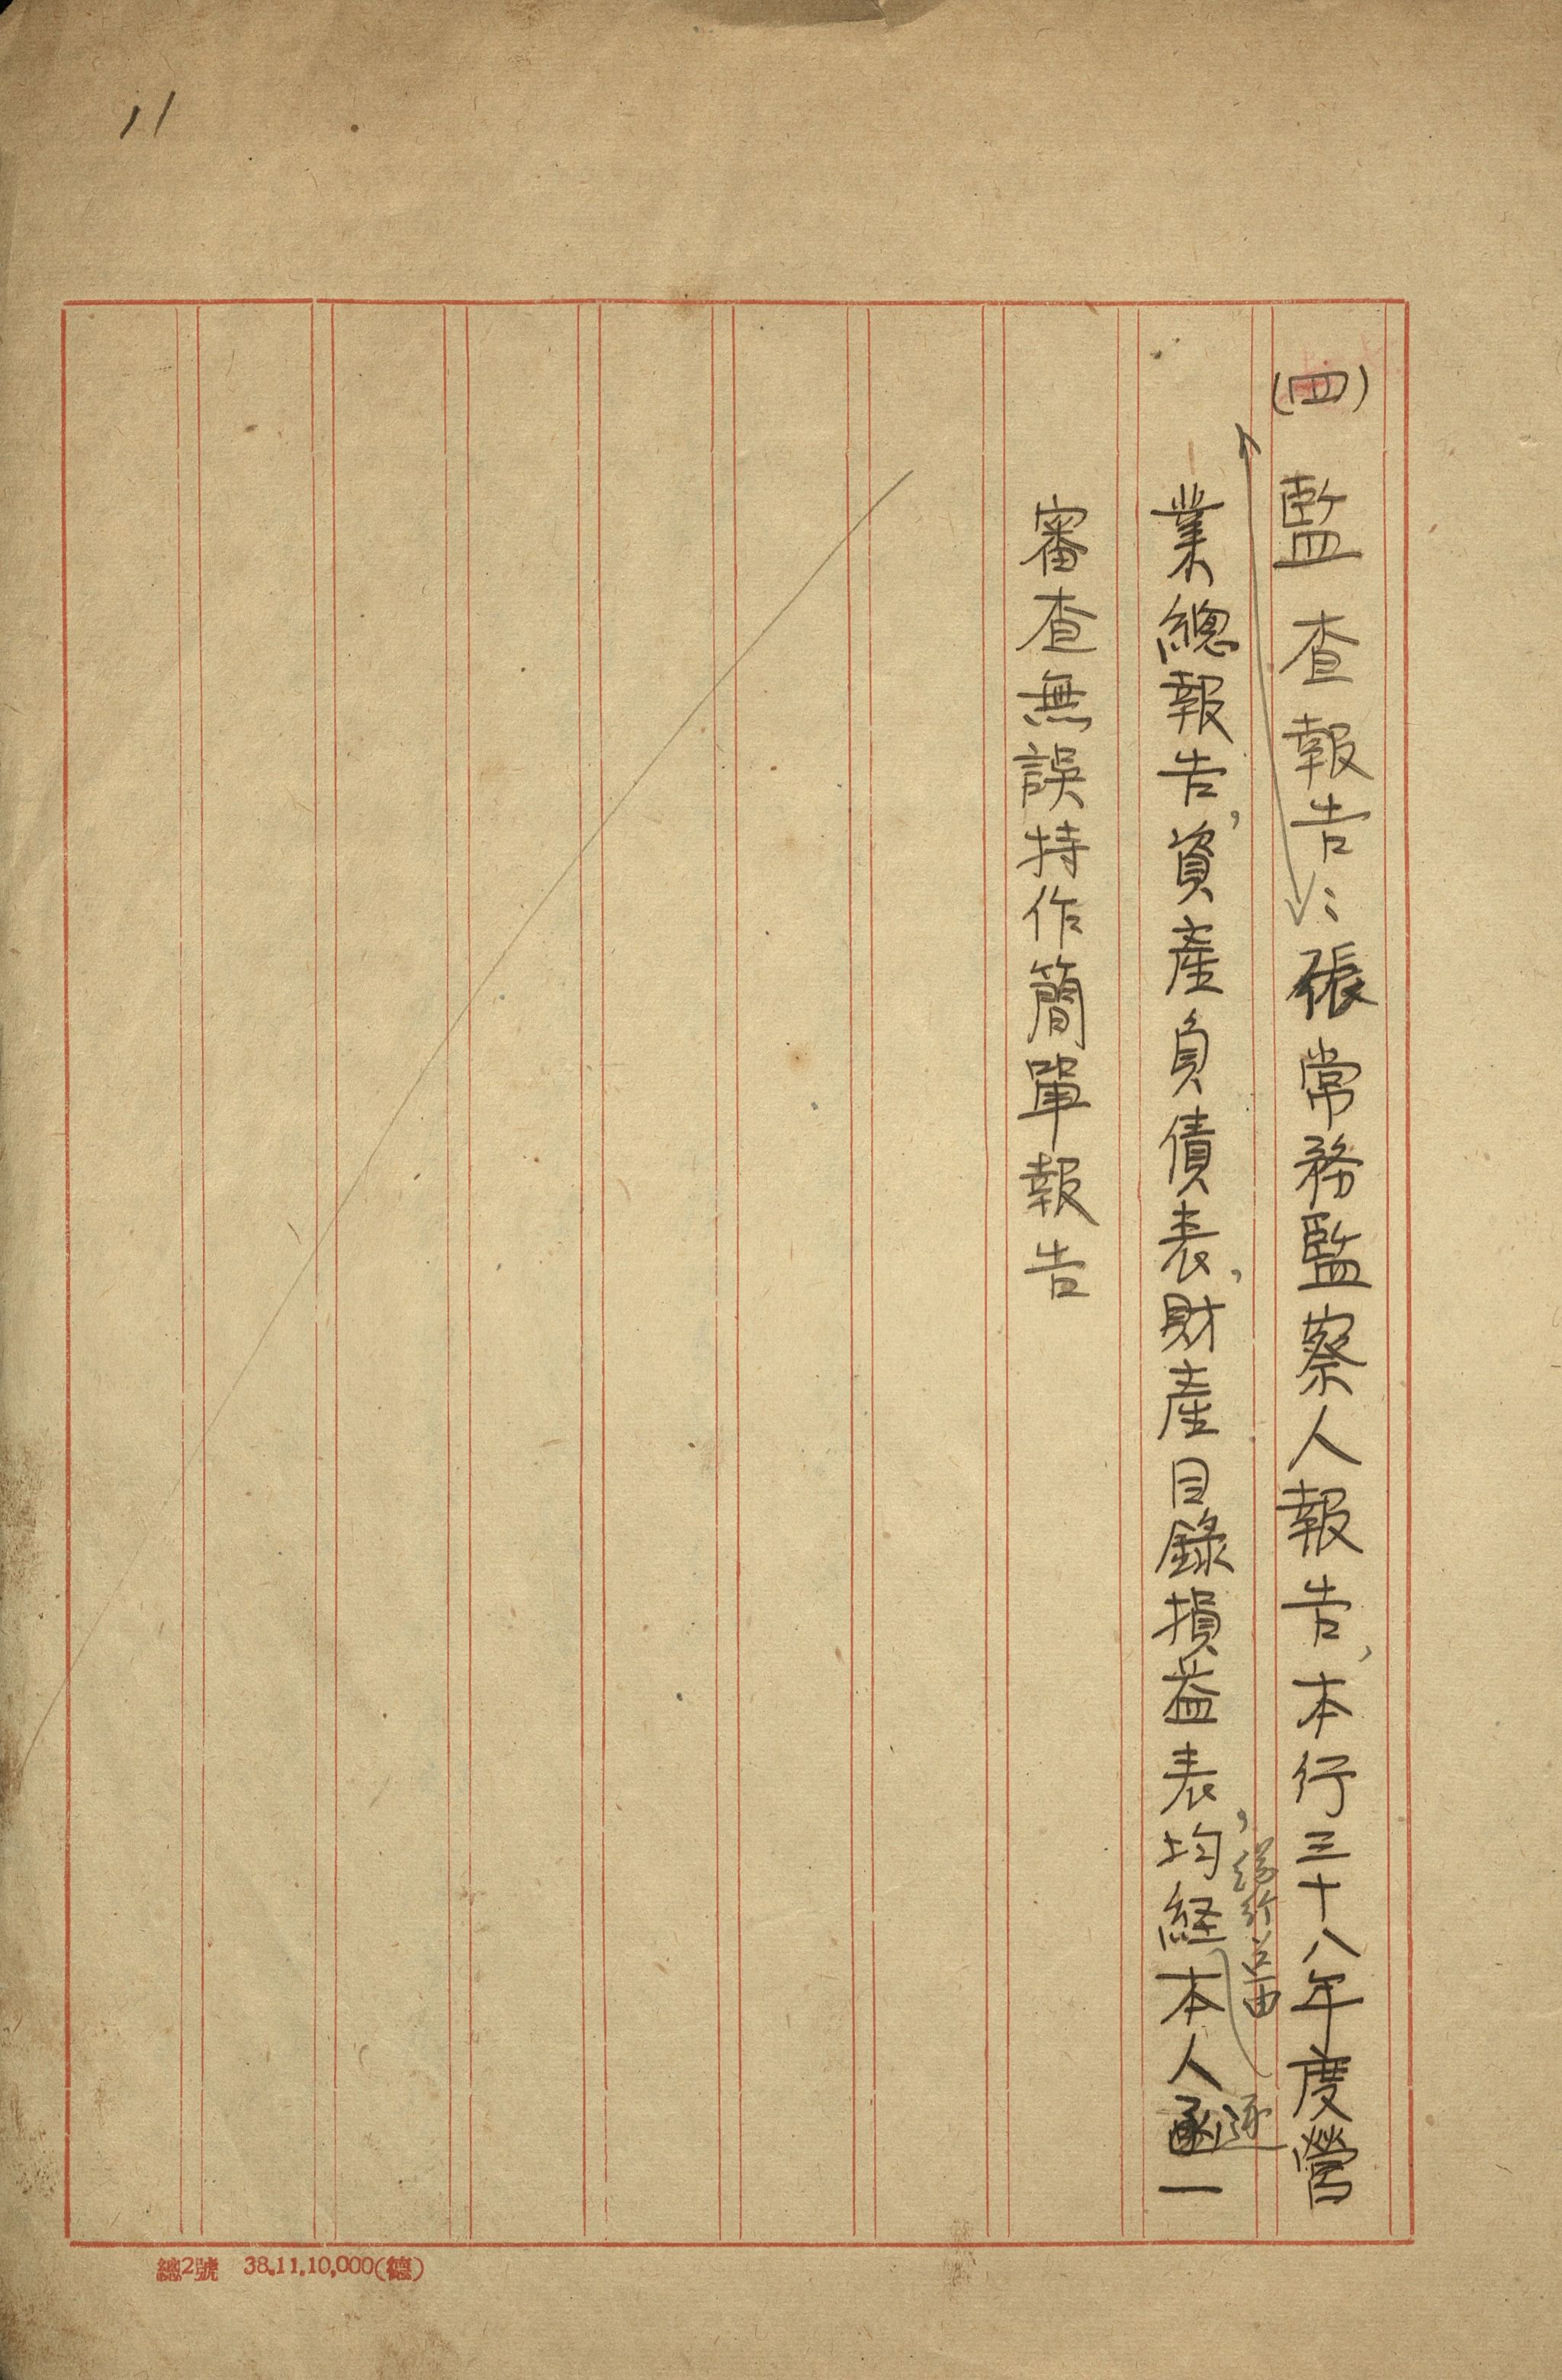 11
(四) 監查報告:張常務監察人報告,本行三十八年度營
業總報告,資產負債表,財產目錄損益表,均経本人逐一
審查無誤持作簡單報告
總2號 38.11.10,000(德)